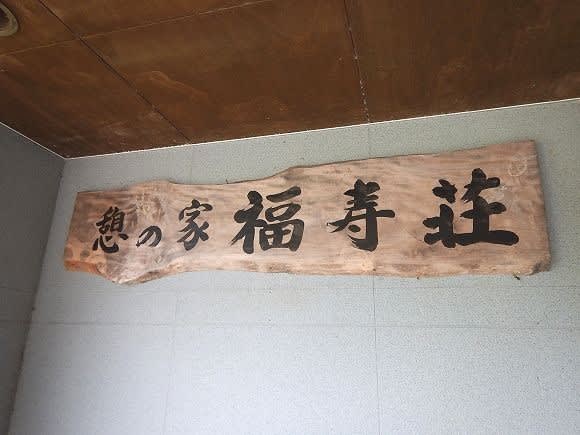 憩の家 福寿荘